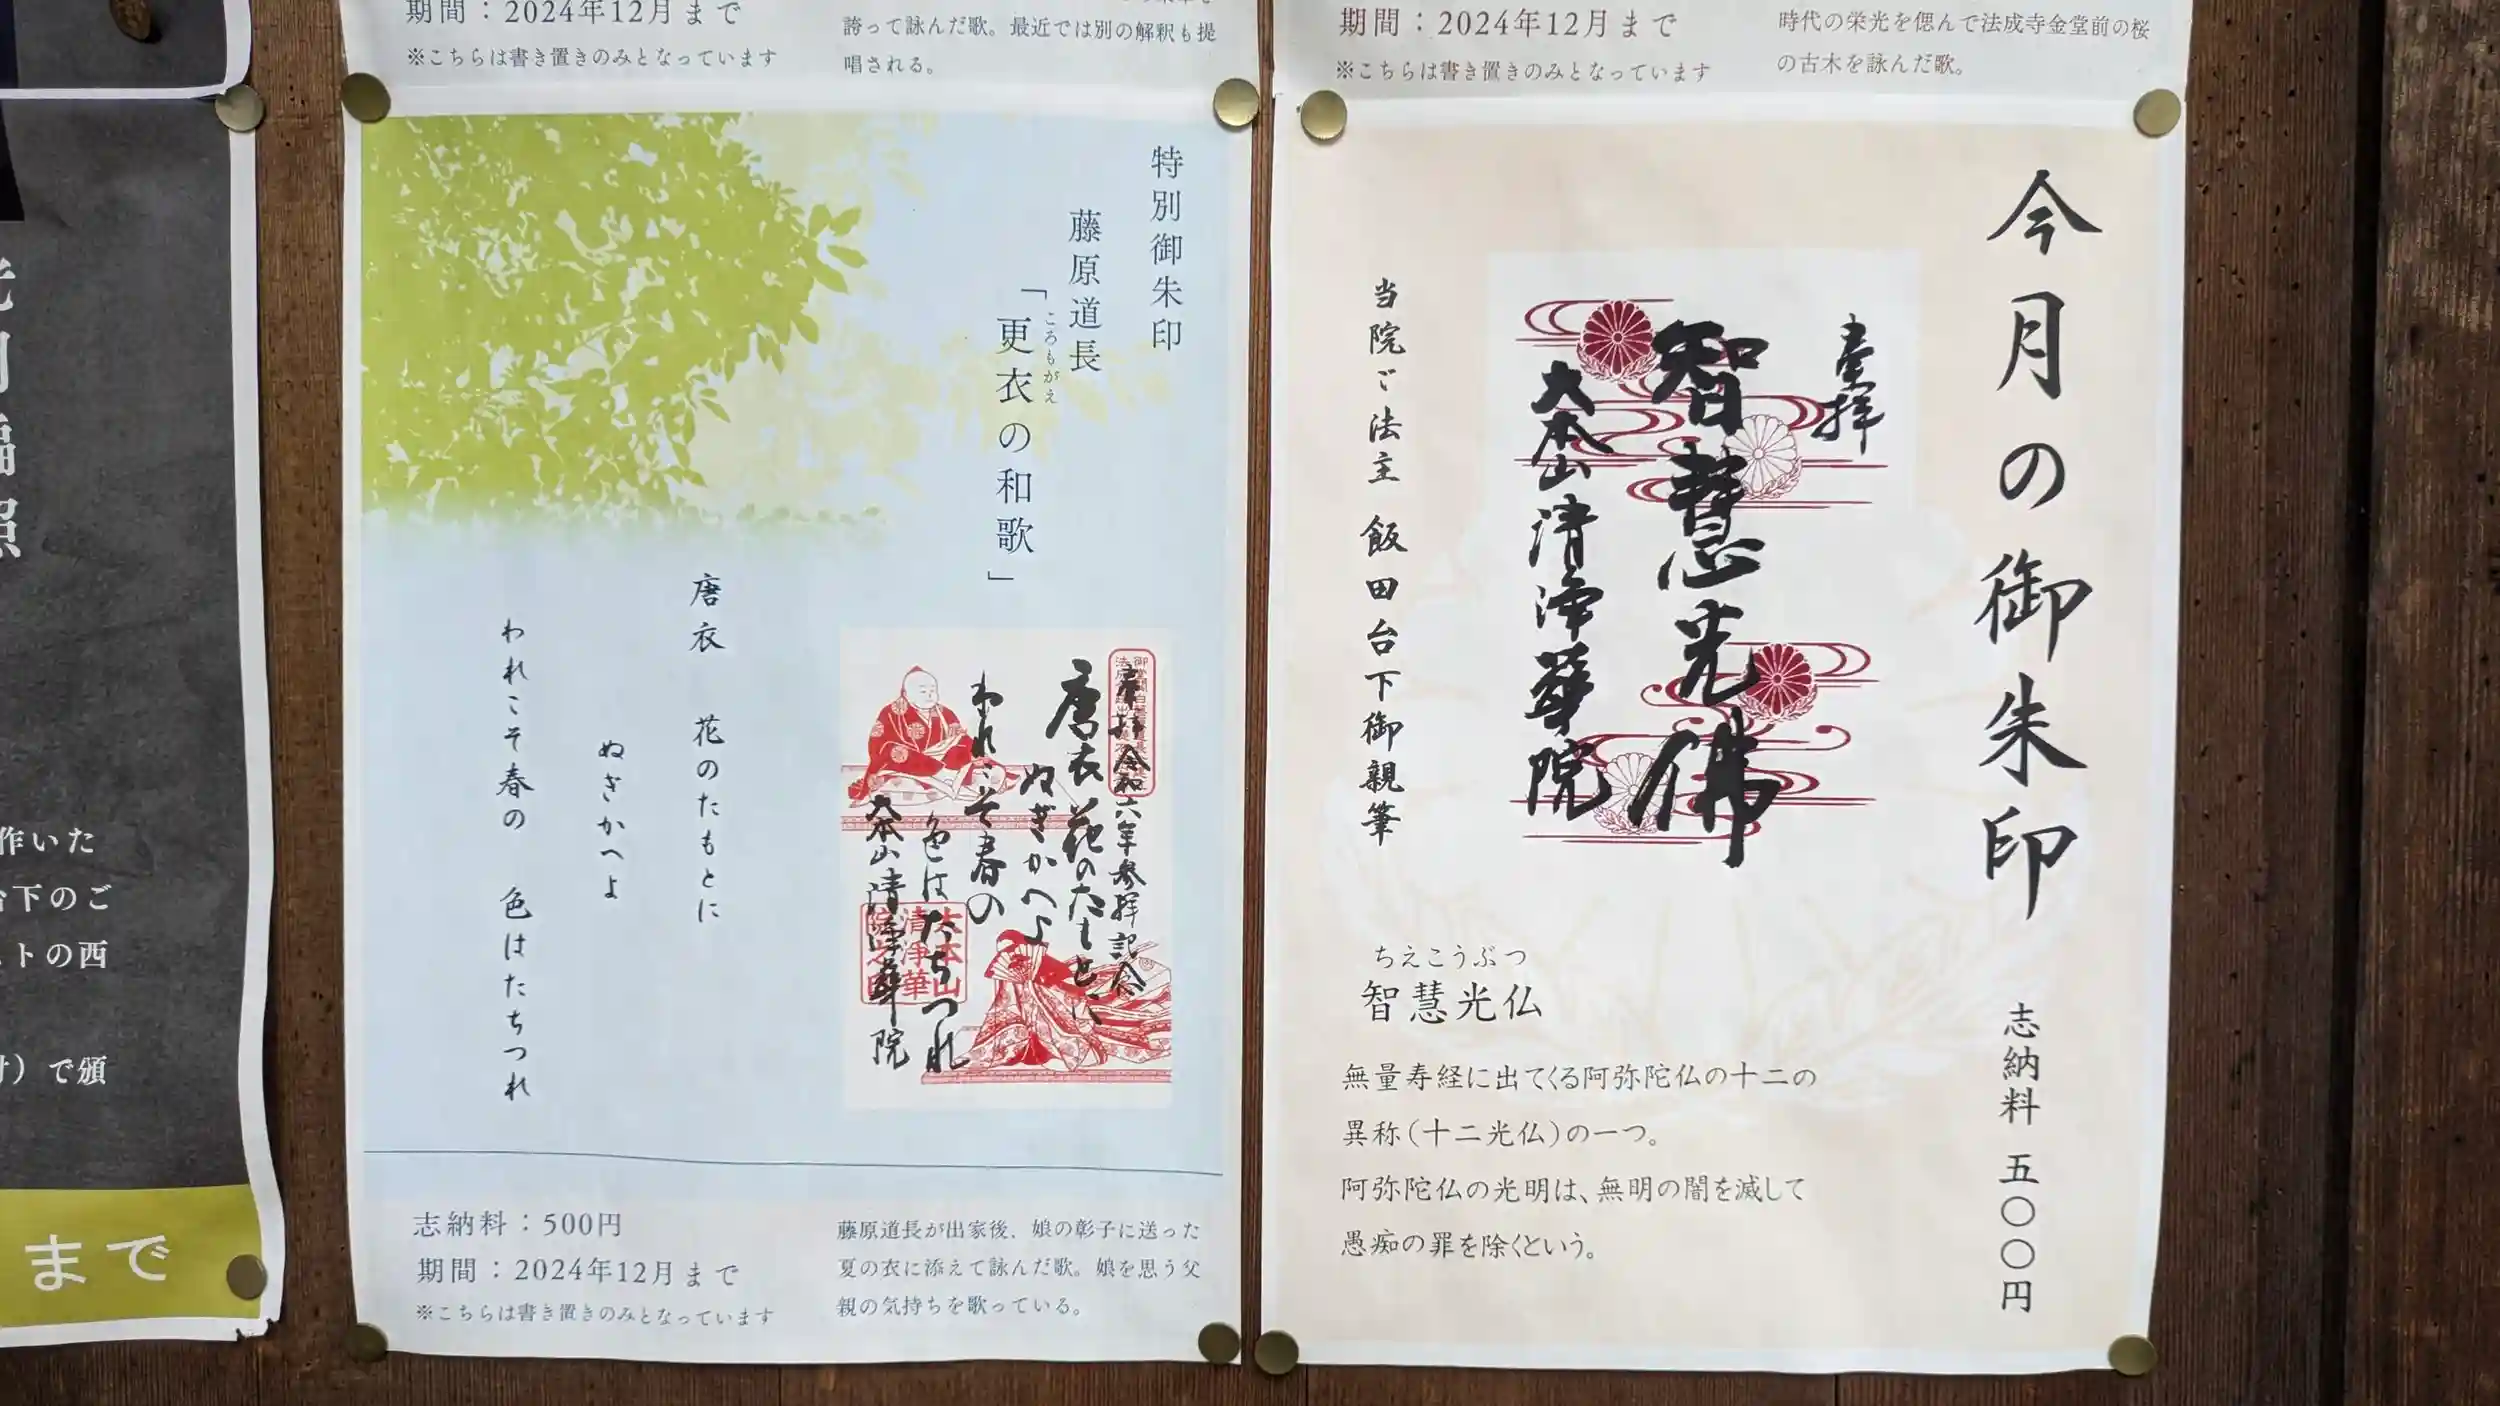 期間：2024年12月まで
※こちらは書き置きのみとなっています
誇って詠んだ歌。最近では別の解釈も提
唱される。
期間：2024年12月まで
※こちらは書き置きのみとなっています
時代の栄光を偲んで法成寺金堂前の桜
の古木を詠んだ歌。
照
作いた
台下のご
トの西
で頒
まで
特別御朱印
藤原道長
「更衣の和歌」
ころもがえ
唐衣 花のたもとに
ぬぎかへよ
われこそ春の 色はたちつれ
奉拝 令和六年参拝記念
唐衣 花のたもとに
ぬぎかへよ
われこそ春の
色はたちつれ
大本山清浄華院
大本山
清浄華
院之印
志納料：500円
期間：2024年12月まで
※こちらは書き置きのみとなっています
藤原道長が出家後、娘の彰子に送った
夏の衣に添えて詠んだ歌。娘を思う父
親の気持ちを歌っている。
今月の御朱印
志納料 五〇〇円
奉拝
智慧光佛
大本山清浄華院
当院ご法主 飯田台下御親筆
ちえこうぶつ
智慧光仏
無量寿経に出てくる阿弥陀仏の十二の
異称（十二光仏）の一つ。
阿弥陀仏の光明は、無明の闇を滅して
愚痴の罪を除くという。